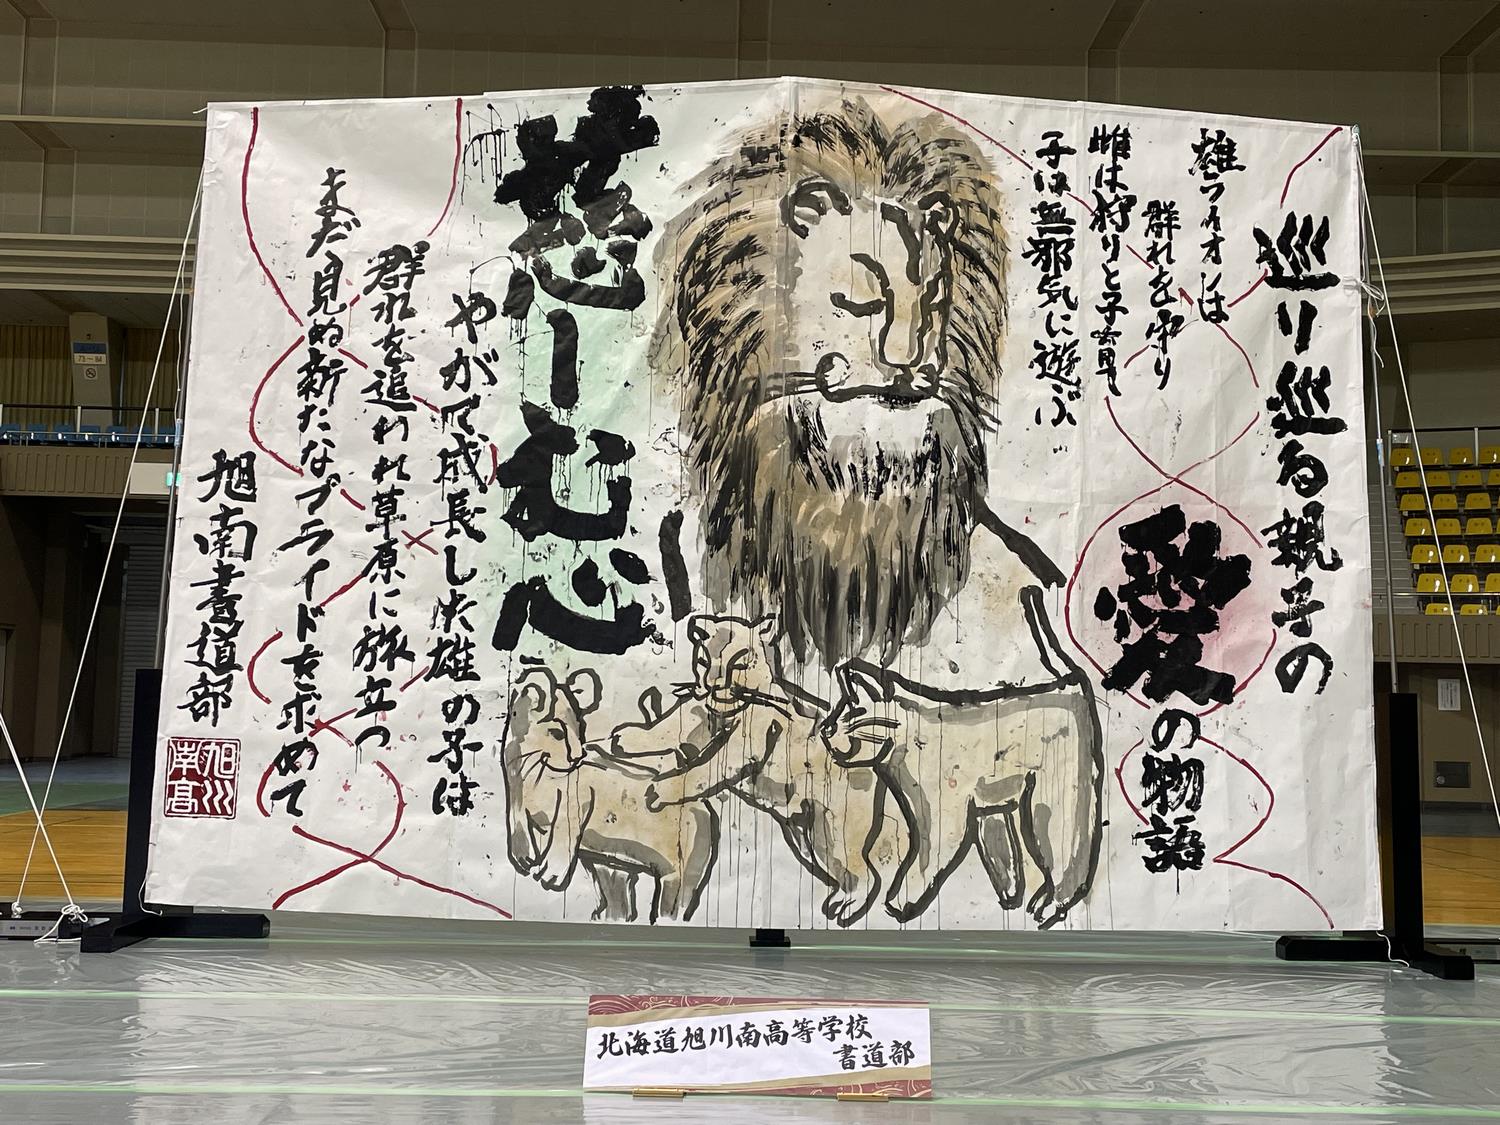 巡り巡る親子の
愛の物語
雄ライオンは
群れを守り
雌は狩りと子育て
子は無邪気に遊ぶ…
慈しむ心
やがて成長した雄の子は
群れを追われ草原に旅立つ
まだ見ぬ新たなプライドを求めて
旭南書道部
旭川
南高
73〜84
北海道旭川南高等学校
書道部